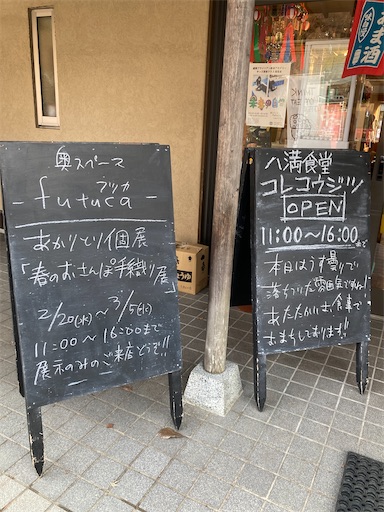 奥スペース
フリカ
- futuca -
あかりとり個展
「春のおさんぽ手織り展」
2/20(水)～3/5(火)
11:00～16:00まで
展示のみのご来店どうぞ!!
八満食堂
コレコウジツ
OPEN
11:00～16:00まで
本日はうす曇りで
落ちついた雰囲気ですね!
あたたかいお食事で
おまちしております!!
あま酒